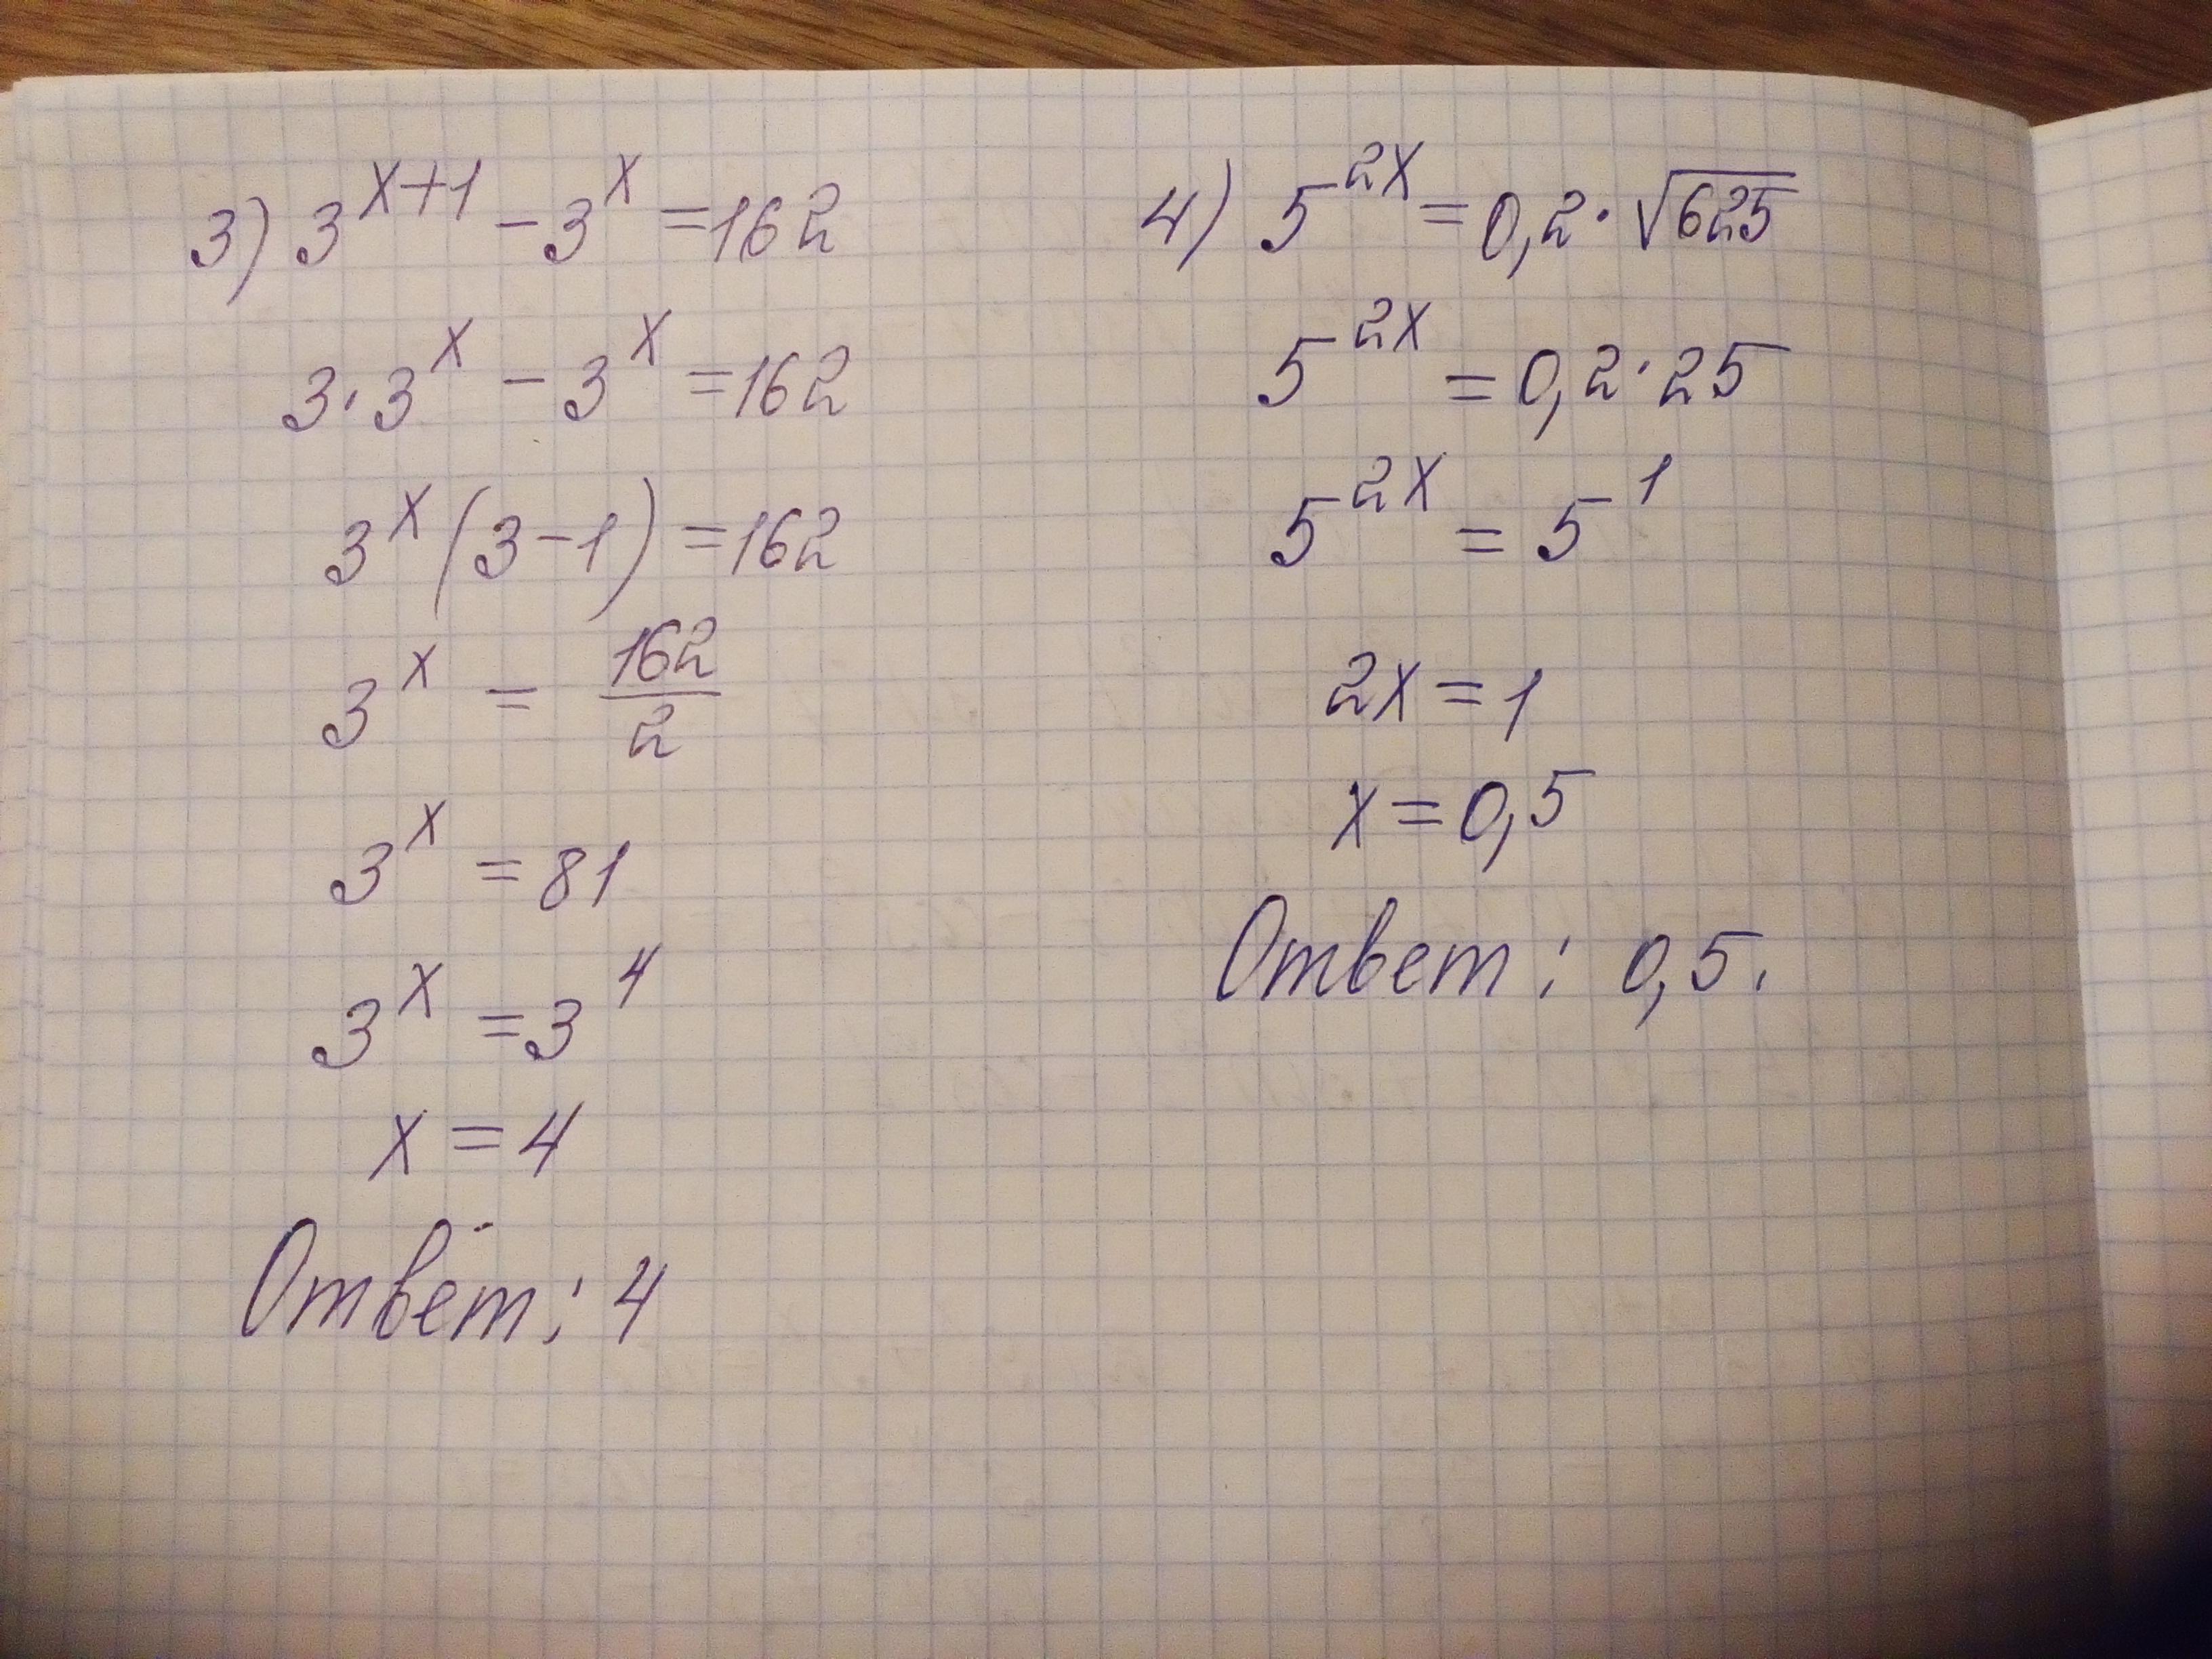 3) 3^{x+1} - 3^x = 162
3·3^x - 3^x = 162
3^x (3-1) = 162
3^x = \frac{162}{2}
3^x = 81
3^x = 3^4
x = 4
Ответ: 4
4) 5^{2x} = 0,2·√625
5^{2x} = 0,2·25
5^{2x} = 5^1
2x = 1
x = 0,5
Ответ: 0,5.